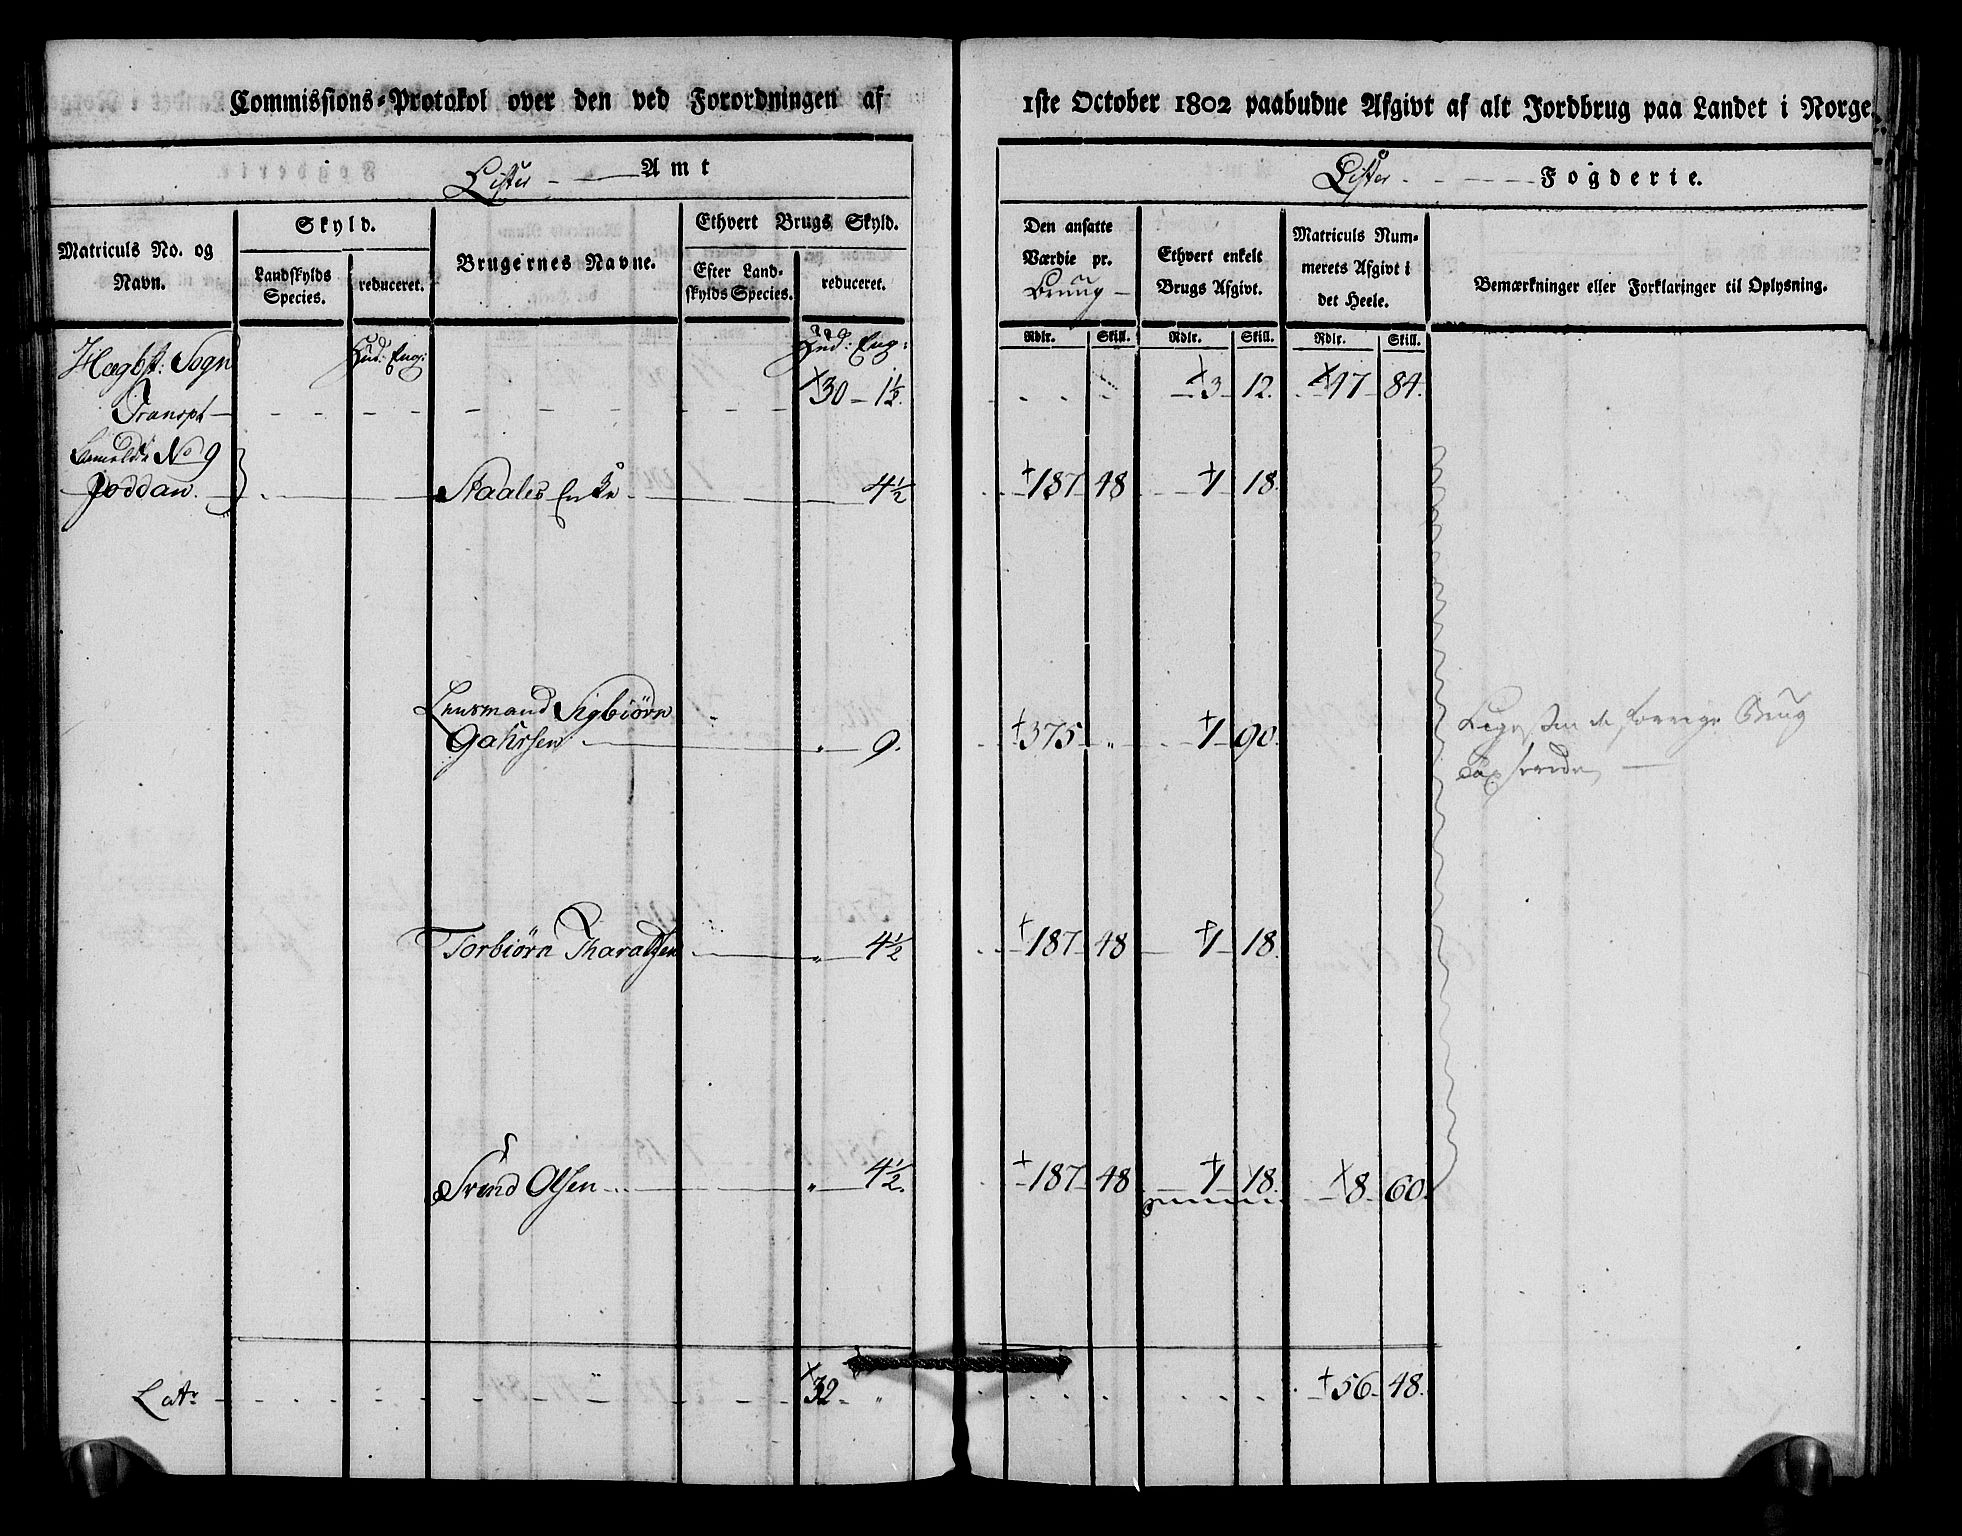 Commissions-Protokol over den ved Forordningen af 1ste October 1802 paabudne Afgivt af alt Jordbrug paa Landet i Norge.
Lister Amt
Lister Fogderie.
Matriculs No. og Navn.
Skyld.
Landskylds Species.
reduceret.
Brugernes Navne.
Ethvert Brugs Skyld.
Efter Landskylds Species.
reduceret.
Den ansatte Værdie pr. Bruug
Ethvert enkelt Brugs Afgivt.
Matriculs Nummerets Afgivt i det Heele.
Bemærkninger eller Forklaringer til Oplysning.
Rdlr. Skill. Rdlr. Skill. Rdlr. Skill.
Hægbst: Sogn Hud: Eng: Hud: Eng:
Transpt 30 1½. 3 12. 47 84.
No 9
Joddan. Staales Enke 4½ 187 48 1 18.
Lensmand Sigbiørn
Gahrsen 9. 375 " 1 90.
forrige Brug
Torbiørn Tharaldsen " 4½ 187 48 1 18.
Svend Olsen " 4½. 187 48 1 18. 8 60.
Latr 32 " 56 48.